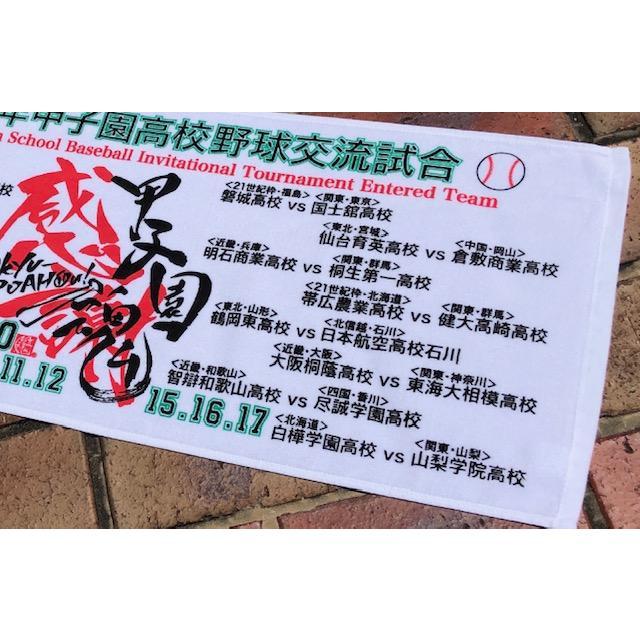 年甲子園高校野球交流試合
School Baseball Invitational Tournament Entered Team
<21世紀枠・福島> <関東・東京>
磐城高校 vs 国士舘高校
<東北・宮城> <中国・岡山>
仙台育英高校 vs 倉敷商業高校
<近畿・兵庫> <関東・群馬>
明石商業高校 vs 桐生第一高校
<21世紀枠・北海道> <関東・群馬>
帯広農業高校 vs 健大高崎高校
<東北・山形> <北信越・石川>
鶴岡東高校 vs 日本航空高校石川
<近畿・大阪> <関東・神奈川>
大阪桐蔭高校 vs 東海大相模高校
<近畿・和歌山> <四国・香川>
智辯和歌山高校 vs 尽誠学園高校
<北海道> <関東・山梨>
白樺学園高校 vs 山梨学院高校
校
甲子園
感謝
0
11.12
15.16.17